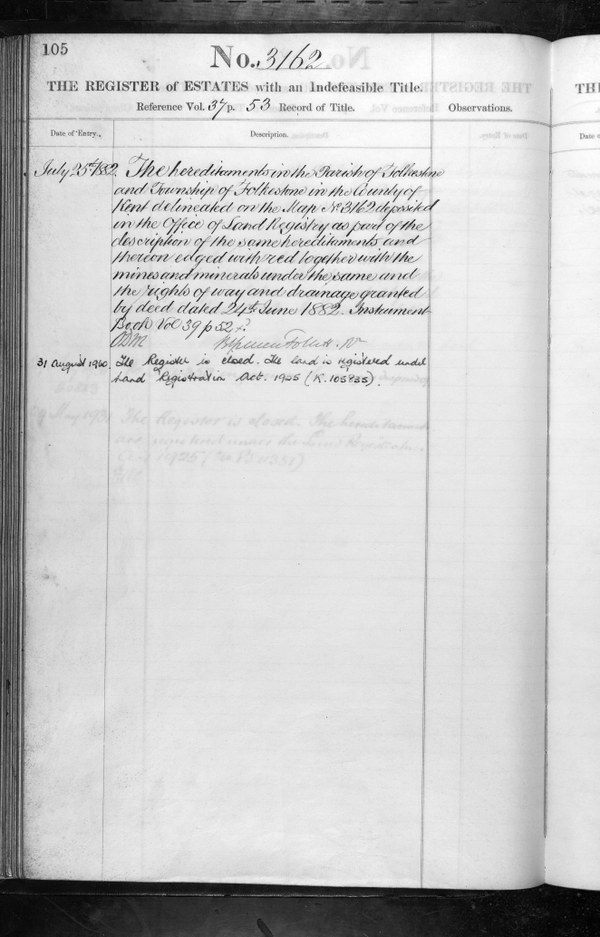 105
No. 3162.
THE REGISTER of ESTATES with an Indefeasible Title.
Reference Vol. 37 p. 53 Record of Title.
Observations.
Date of Entry.
Description.
July 25th 1882. The hereditaments in the Parish of Folkestone
and Township of Folkestone in the County of
Kent delineated on the Map No 3162 deposited
in the Office of Land Registry as part of the
description of the same hereditaments and
thereon edged with red together with the
mines and minerals under the same and
the rights of way and drainage granted
by deed dated 24th June 1882. Instrument
Book Vol 39 p 52
31 August 1960. The Register is closed. The land is registered under
Land Registration Act. 1925 (K. 105835).
TH
Date o